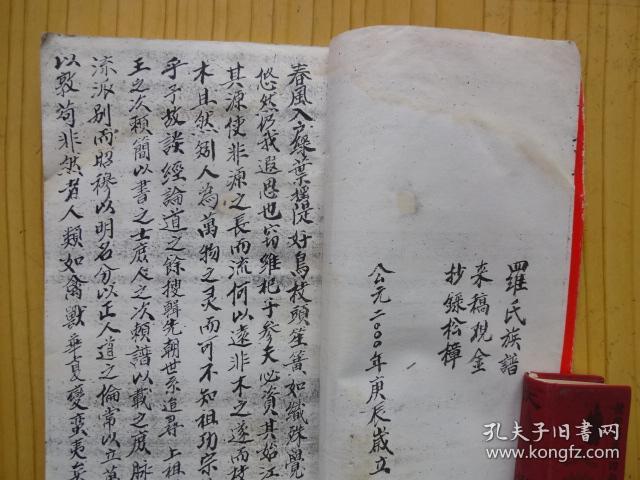 羅氏族譜
來稿現金
抄錄松樟
公元二〇〇〇年庚辰歲立
春風入戶綠葉搖堤好鳥枝頭笙簧如織殊覺
悠然仍我遐思也竊維杞子參天必資其始江
其源使非源之長而流何以遠非木之遂而枝
木且然矧人為萬物之灵而可不知祖功宗
乎予故談經論道之餘搜輯先朝世系追尋上祖
王之次賴簡以書之士庶人之次賴譜以載之庶脉
流派别而昭穆以明名分以正人道之倫常以立萬
以敦苟非然者人類如禽獸華夏變蛮夷矣
孔夫子旧書网